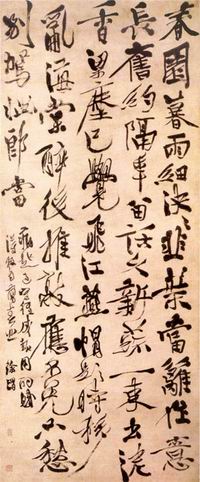 春園暮雨細泱泱韭葉當籬作意
長舊約隔年留話久新蔬一束出泥
香梁塵已覺飛江燕帽影時移
亂海棠醉後推敲應不免不愁
別駕惱郎當
徐渭